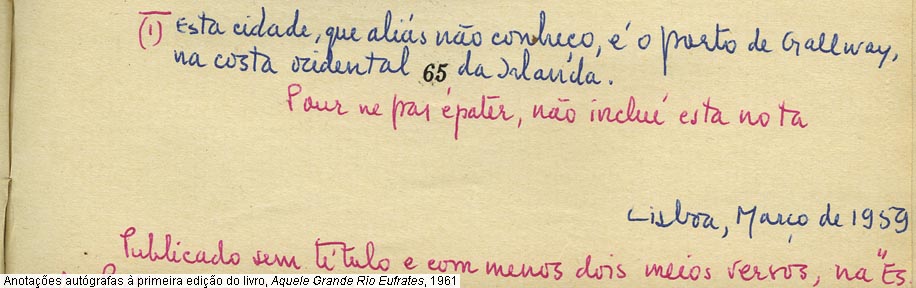 (1) Esta cidade, que aliás não conheço, é o porto de Gallway,
na costa ocidental 65 da Irlanda.
Pour ne pas épater, não incluí esta nota
Lisboa, Março de 1959
Publicado sem título e com menos dois meios versos, na "Es
Anotações autógrafas à primeira edição do livro, Aquele Grande Rio Eufrates, 1961